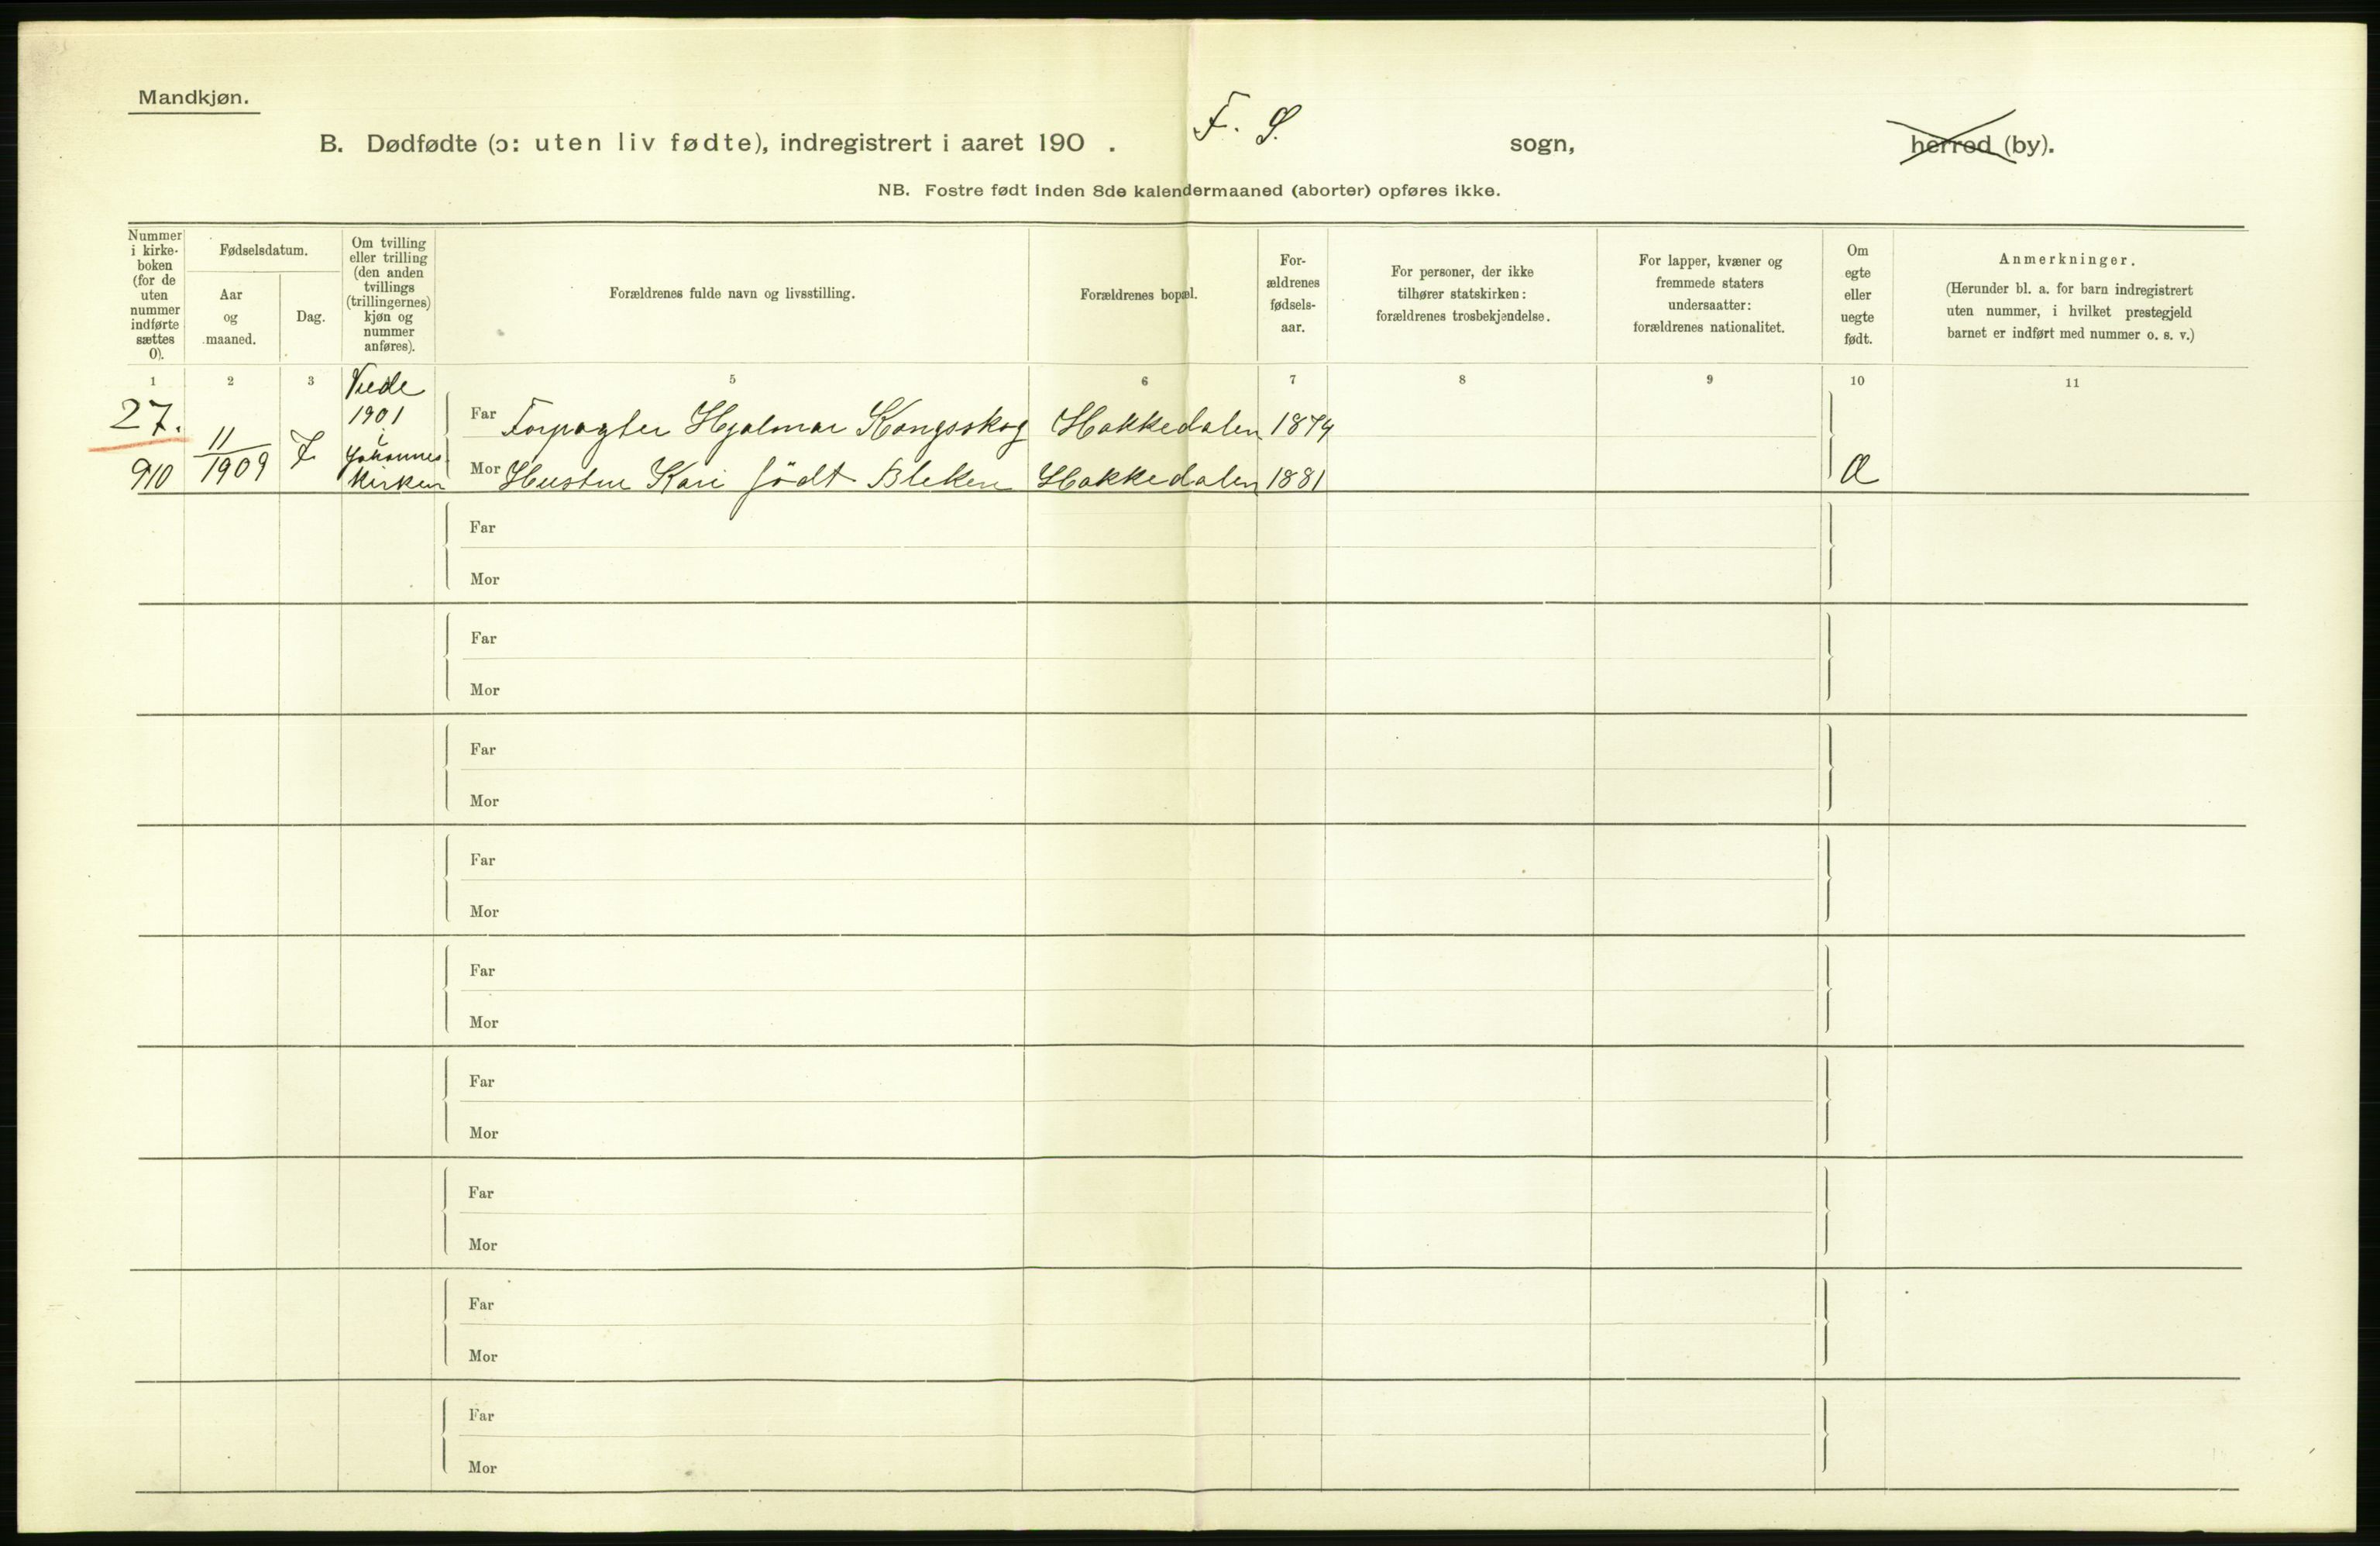 Mandkjøn.
B. Dødfødte (ɔ: uten liv fødte), indregistrert i aaret 190 . F. S. sogn, herred (by).
NB. Fostre født inden 8de kalendermaaned (aborter) opføres ikke.
Nummer
i kirke-
boken
(for de
uten
nummer
indførte
sættes
0).
Fødselsdatum.
Aar
og
maaned.
Dag.
Om tvilling
eller trilling
(den anden
tvillings
(trillingernes)
kjøn og
nummer
anføres).
Forældrenes fulde navn og livsstilling.
Forældrenes bopæl.
For-
ældrenes
fødsels-
aar.
For personer, der ikke
tilhører statskirken:
forældrenes trosbekjendelse.
For lapper, kvæner og
fremmede staters
undersaatter:
forældrenes nationalitet.
Om
egte
eller
uegte
født.
Anmerkninger.
(Herunder bl. a. for barn indregistrert
uten nummer, i hvilket prestegjeld
barnet er indført med nummer o. s. v.)
1 2 3 5 6 7 8 9 10 11
27.
910
11
1909
7
Viede
1901
i
Johannes
kirken
Far Forpagter Hjalmar Kongsskog Hakkedalen 1874
Mor Hustru Kari født Bleken Hakkedalen 1881 Æ
Far
Mor
Far
Mor
Far
Mor
Far
Mor
Far
Mor
Far
Mor
Far
Mor
Far
Mor
Far
Mor